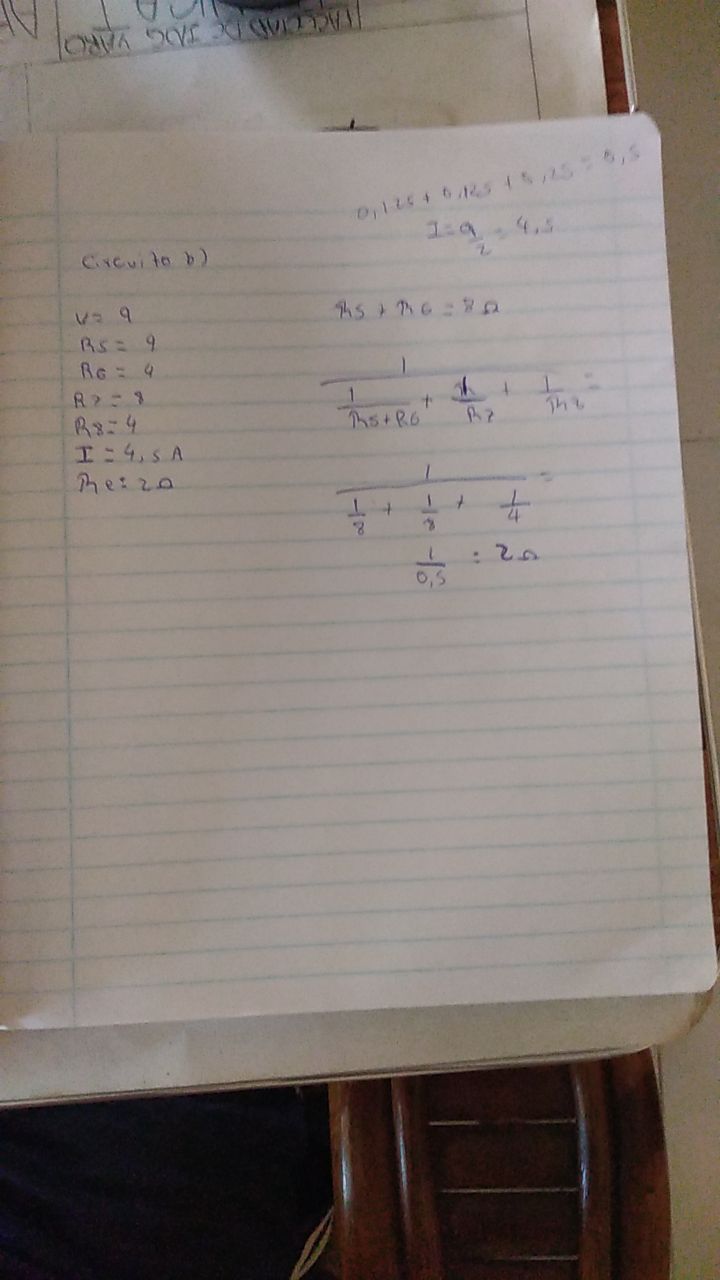 0,125 + 0,125 + 0,25 = 0,5
I = 9/2 = 4,5
Circuito b)
V = 9
R5 = 4
R6 = 4
R7 = 8
R8 = 4
I = 4,5 A
Re = 2Ω
R5 + R6 = 8Ω
1
1/R5+R6 + 1/R7 + 1/R8 =
1
1/8 + 1/8 + 1/4 =
1/0,5 = 2Ω